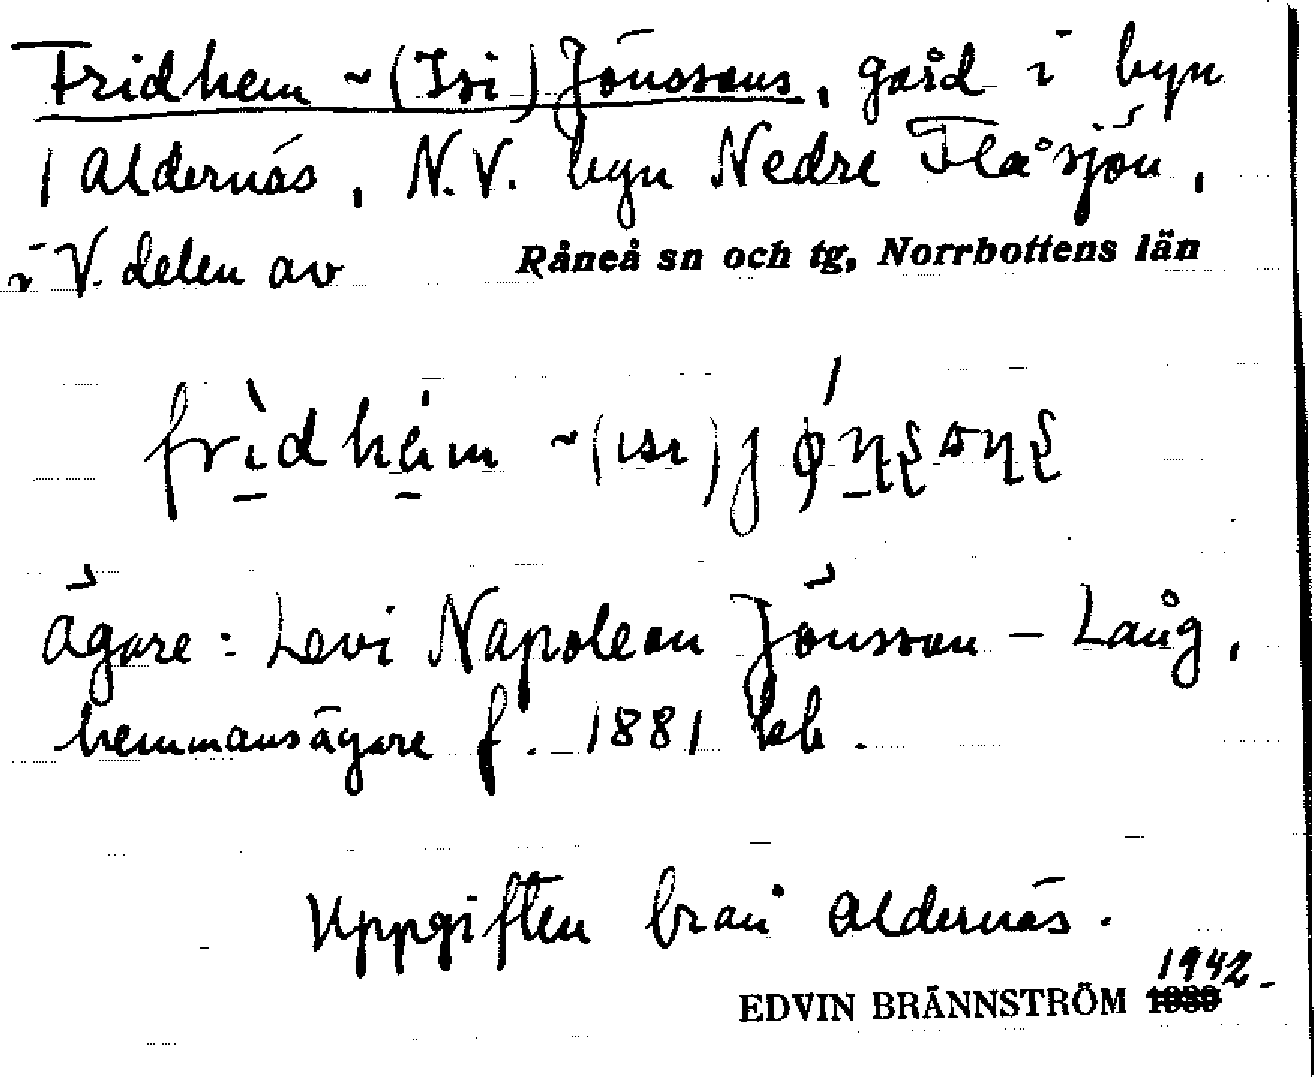 Fridhem ~ (Isi) Jönssons, gård i byn
/ Aldernäs, N.V. byn Nedre Flåsjön,
i V. delen av Råneå sn och tg, Norrbottens län
frìdhém ~ (ısı) jǿn̨s̨ɷn̨s̨
Ägare: Levi Napoleon Jönsson – Lång,
hemmansägare f. 1881
Uppgiften från Aldernäs.
1942
EDVIN BRÄNNSTRÖM 1939